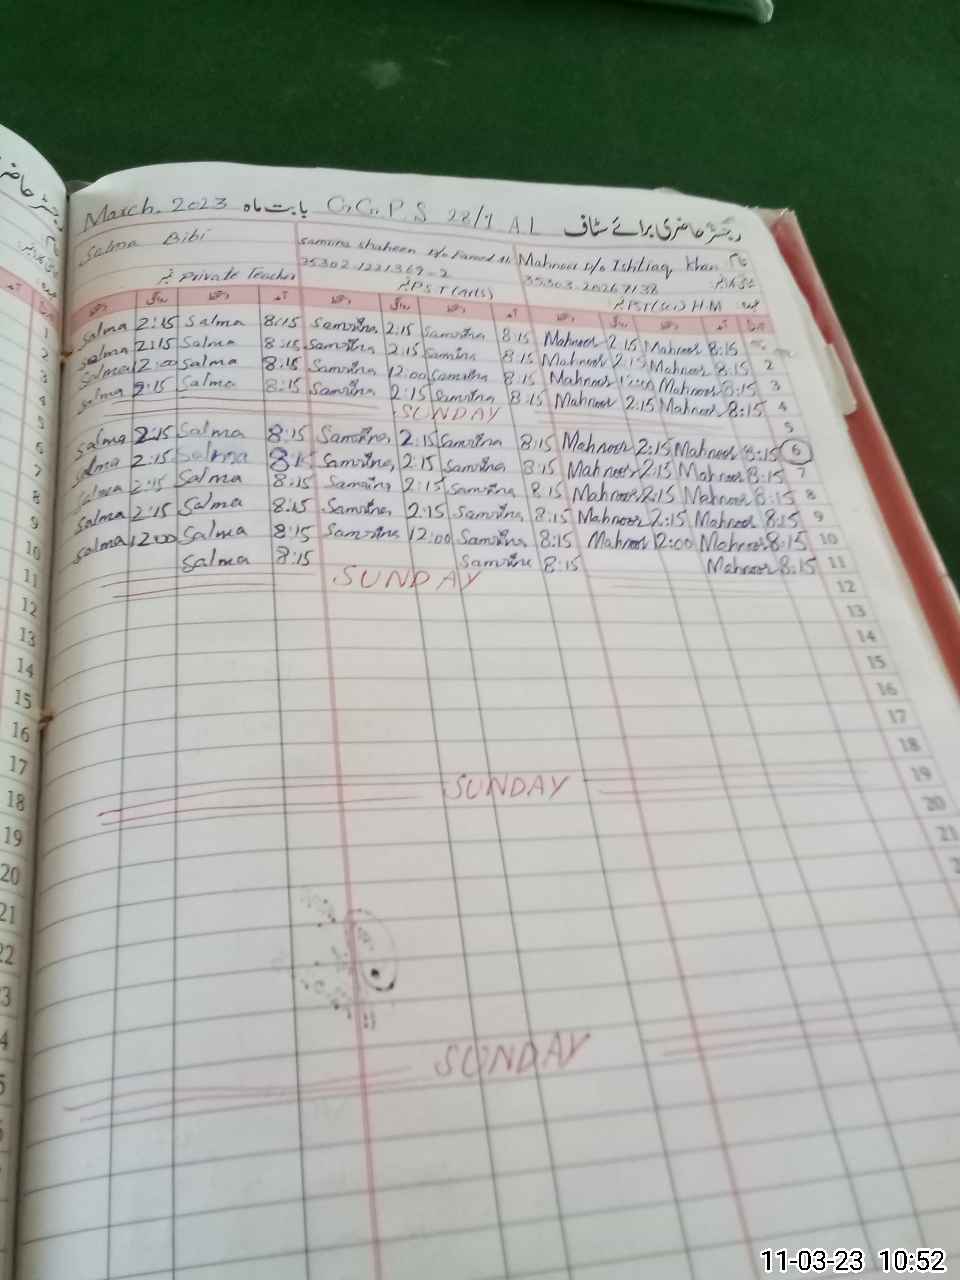 March, 2023 بابت ماہ G.G.P.S 28/1 A.L رجسٹر حاضری برائے سٹاف
Salma Bibi Samina Shaheen Mahnoor D/o Ishtiaq Khan نام
Private Teacher PST(Arts) PST(Sci) H.M عہدہ
Salma 2:15 Salma 8:15 Samina 2:15 Samina 8:15 Mahnoor 2:15 Mahnoor 8:15
Salma 2:15 Salma 8:15 Samina 2:15 Samina 8:15 Mahnoor 2:15 Mahnoor 8:15 2
Salma 12:00 Salma 8:15 Samina 12:00 Samina 8:15 Mahnoor 12:00 Mahnoor 8:15 3
Salma 2:15 Salma 8:15 Samina 2:15 Samina 8:15 Mahnoor 2:15 Mahnoor 8:15 4
SUNDAY 5
Salma 2:15 Salma 8:15 Samina 2:15 Samina 8:15 Mahnoor 2:15 Mahnoor 8:15 6
Salma 2:15 Salma 8:15 Samina 2:15 Samina 8:15 Mahnoor 2:15 Mahnoor 8:15 7
Salma 2:15 Salma 8:15 Samina 2:15 Samina 8:15 Mahnoor 2:15 Mahnoor 8:15 8
Salma 2:15 Salma 8:15 Samina 2:15 Samina 8:15 Mahnoor 2:15 Mahnoor 8:15 9
Salma 12:00 Salma 8:15 Samina 12:00 Samina 8:15 Mahnoor 12:00 Mahnoor 8:15 10
Salma 8:15 Samina 8:15 Mahnoor 8:15 11
SUNDAY 12
13
14
15
16
17
18
SUNDAY 19
20
21
SUNDAY
1
2
3
4
5
6
7
8
9
10
11
12
13
14
15
16
17
18
19
20
21
22
11-03-23 10:52